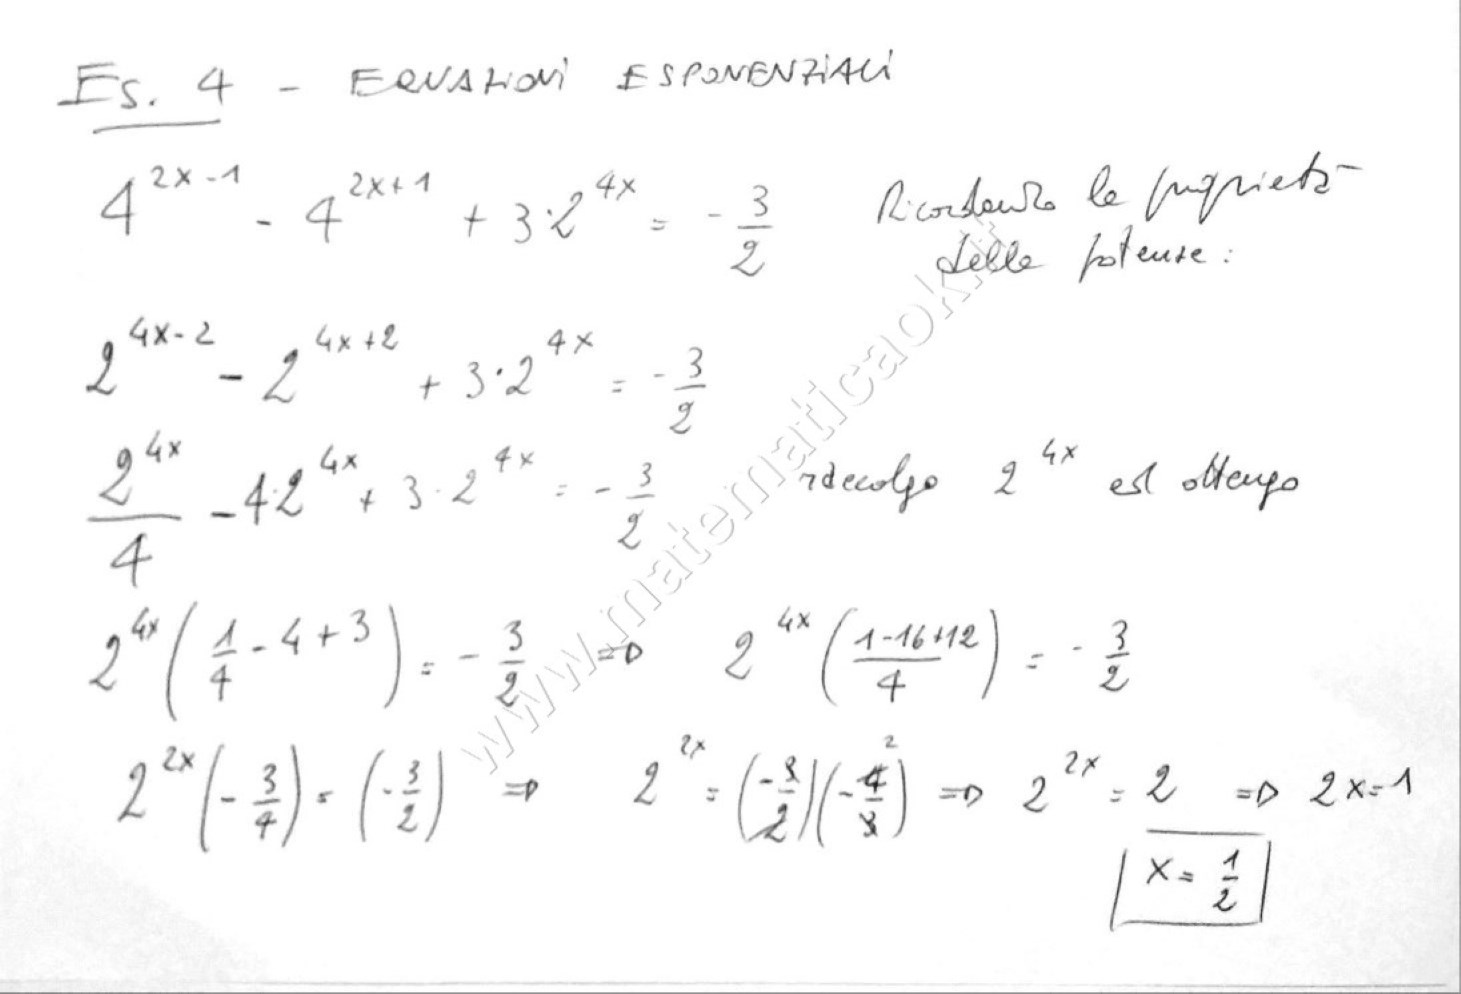 Es. 4 - EQUAZIONI ESPONENZIALI
4^{2x-1} - 4^{2x+1} + 3·2^{4x} = -3/2 Ricordando le proprietà
delle potenze:
2^{4x-2} - 2^{4x+2} + 3·2^{4x} = -3/2
2^{4x}/4 - 4·2^{4x} + 3·2^{4x} = -3/2 raccolgo 2^{4x} ed ottengo
2^{4x}(1/4 - 4 + 3) = -3/2 => 2^{4x}((1-16+12)/4) = -3/2
2^{2x}(-3/4) = (-3/2) => 2^{2x} = (-3/2)(-4/3) 2 => 2^{2x} = 2 => 2x=1
x = 1/2
www.matematicaok.it